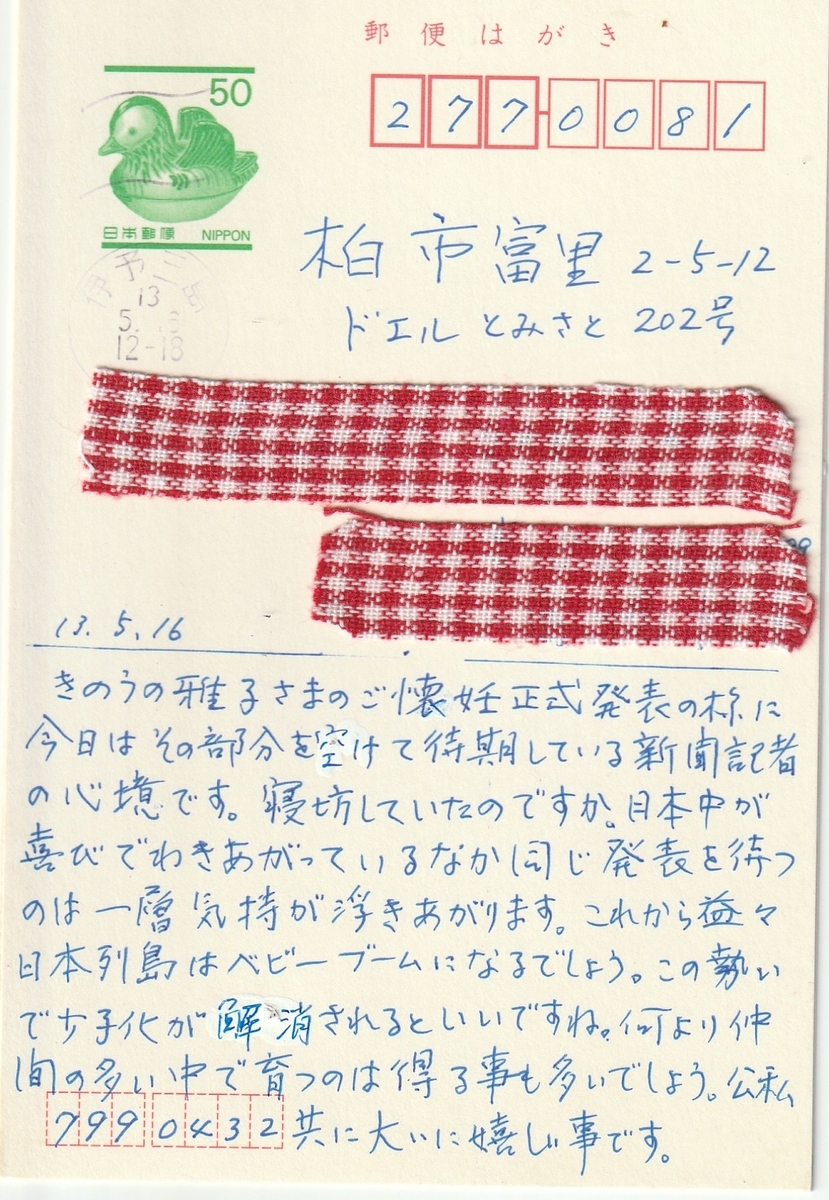 郵便はがき
50
日本郵便 NIPPON
277-0081
伊予三島
13
5.16
12-18
柏市富里 2-5-12
ドエルとみさと 202号
13.5.16
きのうの雅子さまのご懐妊正式発表の様に
今日はその部分を空けて待期している新聞記者
の心境です。寝坊していたのですか。日本中が
喜びでわきあがっているなか同じ発表を待つ
のは一層気持が浮きあがります。これから益々
日本列島はベビーブームになるでしょう。この勢い
で少子化が解消されるといいですね。何より仲
間の多い中で育つのは得る事も多いでしょう。公私
799 0432 共に大いに嬉しい事です。